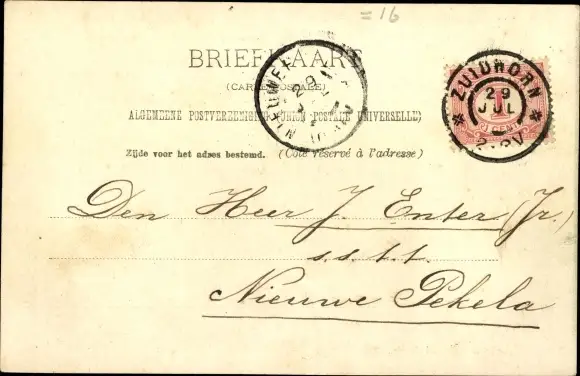 =16
BRIEFKAART
(CARTE POSTALE)
ALGEMEENE POSTVEREENIGING (UNION POSTALE UNIVERSELLE)
Zijde voor het adres bestemd. (Côté réservé à l'adresse)
ZUIDHORN
29
JUL
1
CENT
Den Heer J. Enter (Jr.)
s.s.t.t.
Nieuwe Pekela